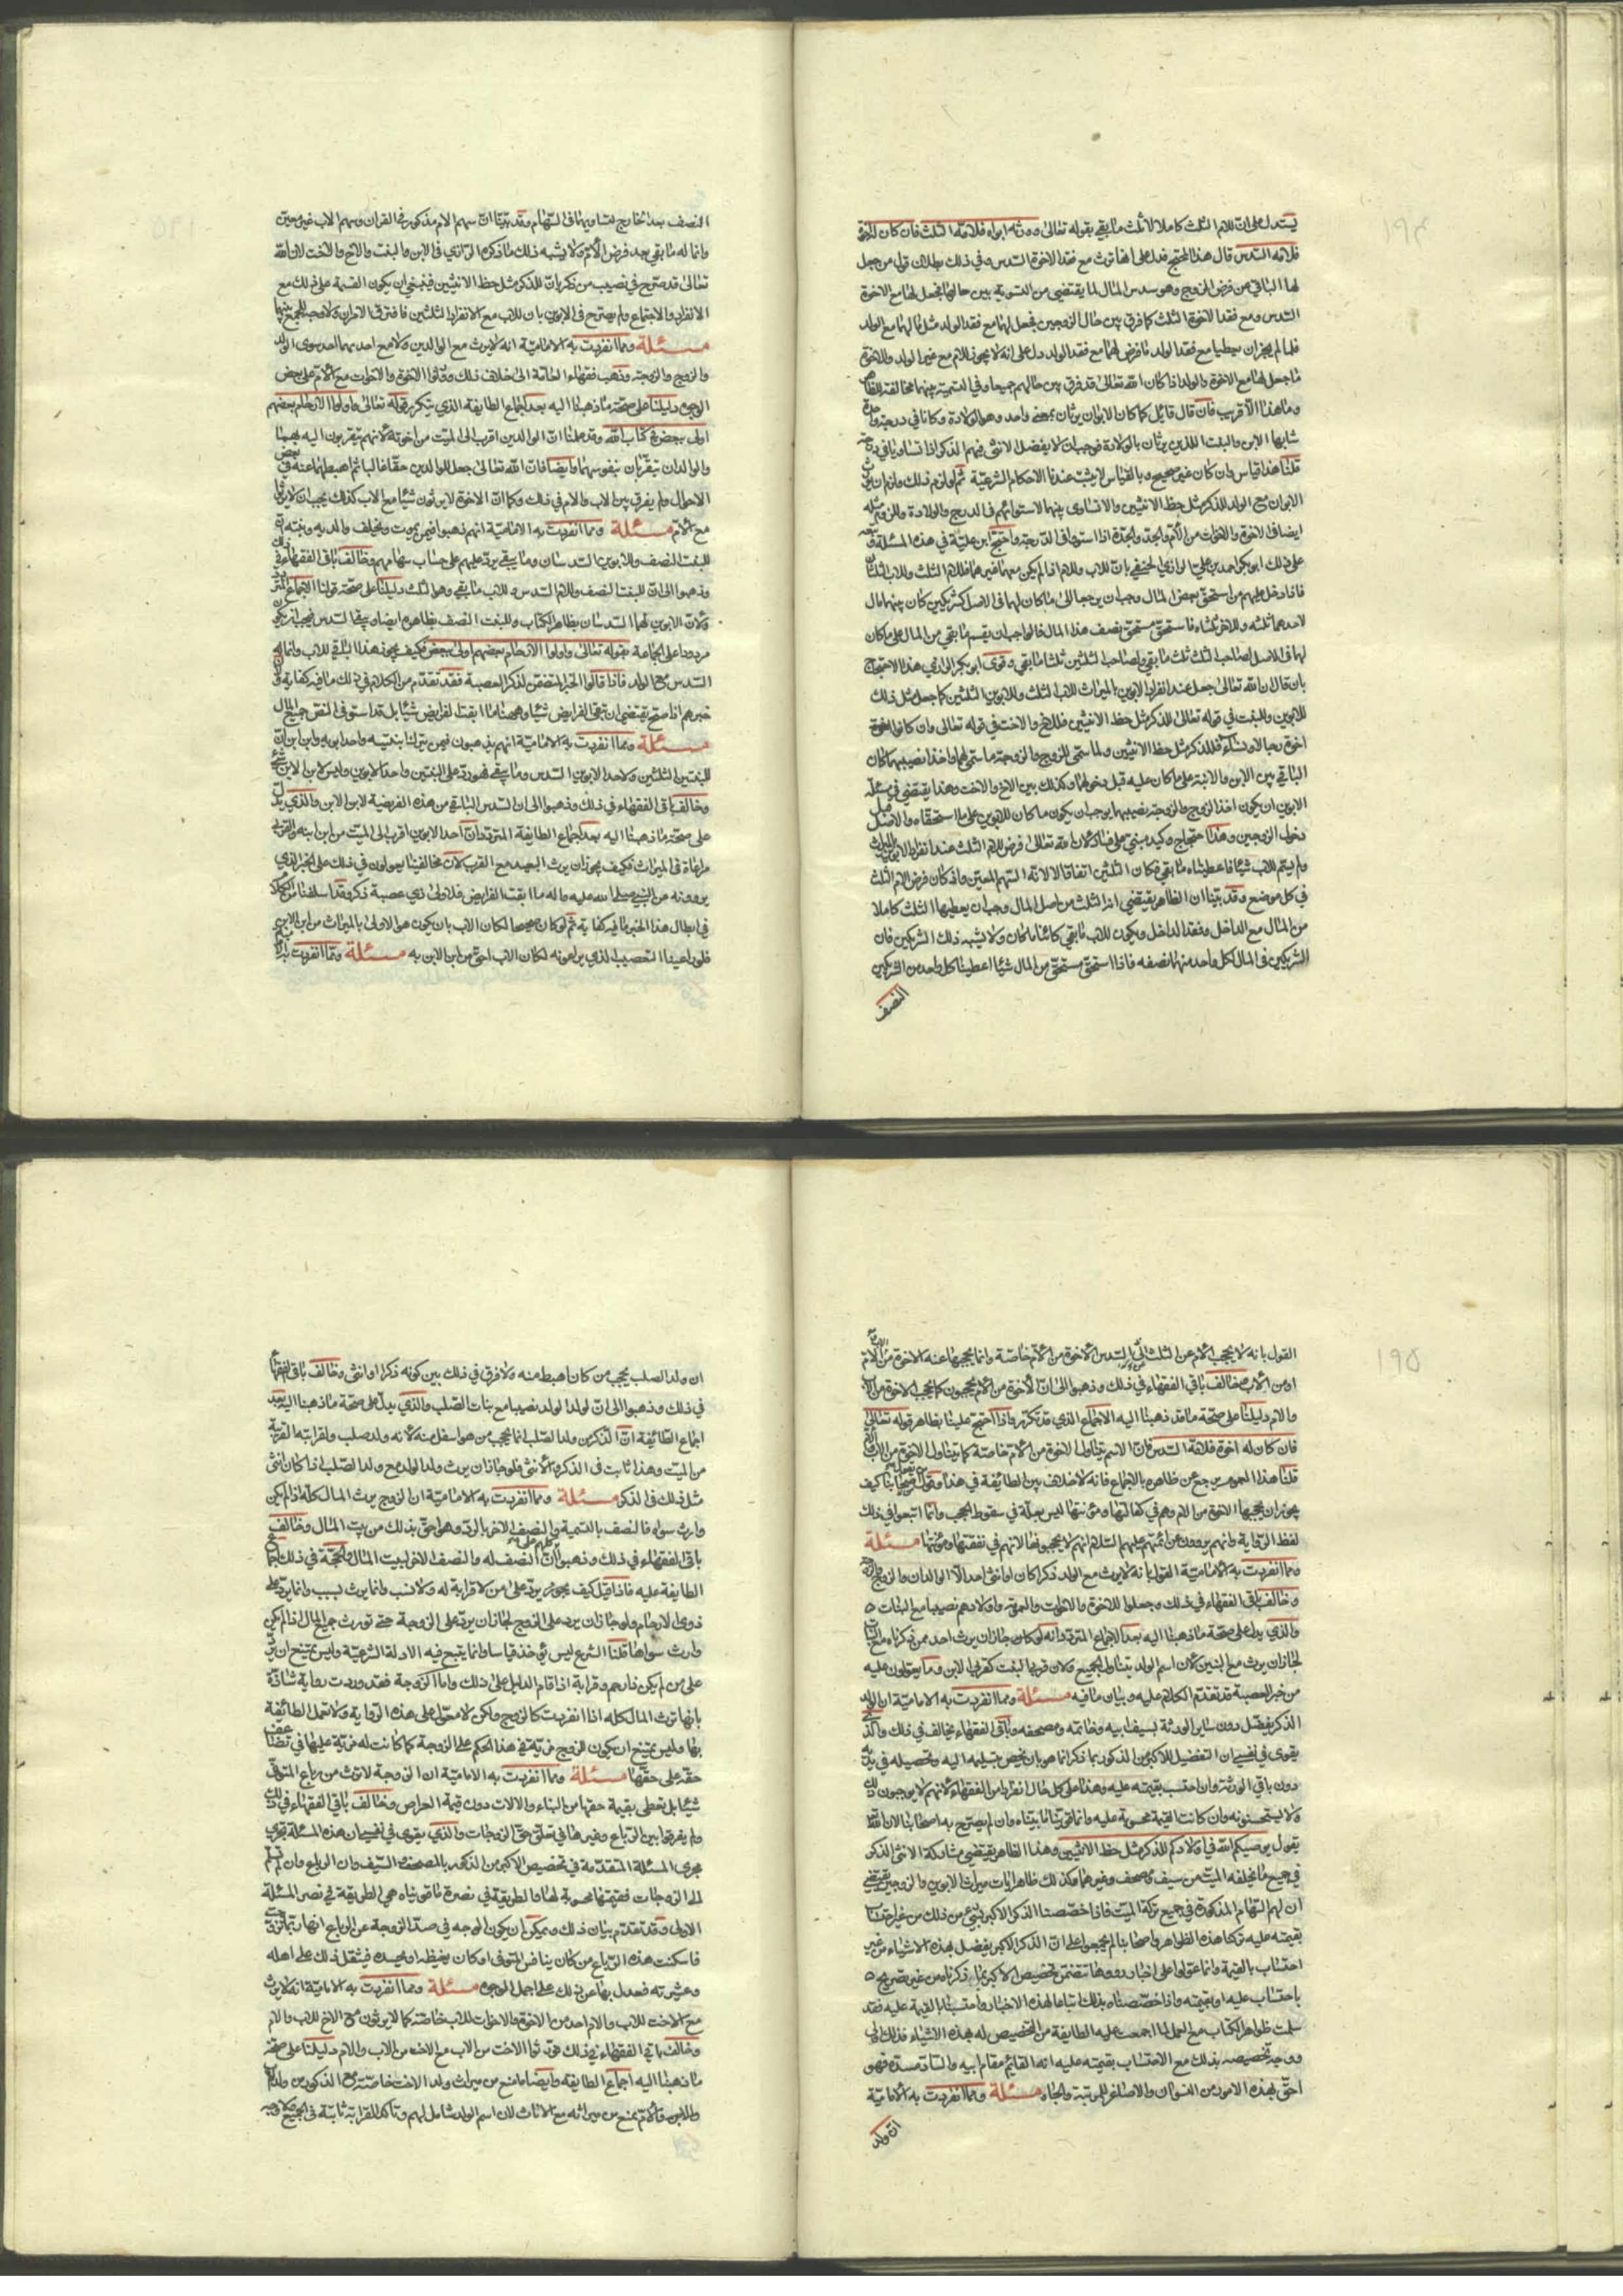 ١٩٤
يستدل على ان للام الثلث كاملا لا ثلث ما بقي بقوله تعالى وورثه ابواه فلامه الثلث فان كان له اخوة
فلامه السدس قال هذا المحتج فدل على انها ترث مع فقد الاخوة السدس وفي ذلك بطلان قول من جعل
لها الباقي من فرض الزوج وهو سدس المال لما يقتضي من التسوية بين حاليها فجعل لها مع الاخوة
السدس ومع فقد الاخوة الثلث كما فرق بين حال الزوجين فجعل لهما مع فقد الولد مثل ما لهما مع الولد
فلما لم يجز ان يعطيا مع فقد الولد ما فرض لهما مع فقد الولد دل على انه لا يجوز للام مع غير الولد والاخوة
ما جعل لها مع الاخوة والولد اذا كان الله تعالى قد فرق بين حالهم جميعا وفي التسوية بينهما مخالفة للظاهر
وما هذا الا قريب فان قال قائل كما كان الابوان يرثان بمعنى واحد وهو الولادة وكانا في درجة واحدة
شابها الابن والبنت اللذين يرثان بالولادة فوجب ان لا يفضل الانثى فيهم الذكر اذا تساويا في درجة
قلنا هذا قياس وان كان غير صحيح وبالقياس لا يثبت عندنا الاحكام الشرعية ثم لو لزم ذلك ولزم ان يرث
الابوان مع الولد للذكر مثل حظ الانثيين والا تساوى بينهما لاستوائهم في الدرج والولادة والزوم مثله
ايضا في الاخوة والاخوات من الام والجد والجدة اذا استووا في الدرجة واحتج ابن علية في هذه المسئلة وتبعه
على ذلك ابو بكر احمد بن علي الرازي الحنفي بان للاب وللام اذا لم يكن معهما غيرهما فللام الثلث وللاب الثلثان
فاذا دخل عليهم من استحق بعض المال وجب ان يرجعا الى ما كان لهما في الاصل كشريكين كان بينهما مال
لاحدهما ثلثه وللاخر ثلثاه فاستحق مستحق نصف هذا المال فالواجب ان يقسم ما بقي من المال على ما كان
لهما في الاصل لصاحب الثلث ثلث ما بقي ولصاحب الثلثين ثلثا ما بقي وقوى ابو بكر الرازي هذا الاحتجاج
بان قال ان الله تعالى جعل عند انفراد الابوين بالميراث للاب الثلث وللابوين الثلثين كما جعل مثل ذلك
للابوين وللبنت في قوله تعالى للذكر مثل حظ الانثيين فللاخ والاخت في قوله تعالى وان كانوا اخوة
اخوة رجالا ونساء فللذكر مثل حظ الانثيين ولما سمى للزوج والزوجة ما سمى لهما واخذا نصيبهما كان
الباقي بين الابن والابنة على ما كان عليه قبل دخولهما وكذلك بين الاخ والاخت وهذا يقتضي في مسئلة
الابوين ان يكون اخذ الزوج والزوجة نصيبهما يوجب ان يكون ما كان للابوين على ما استحقاه والاصل قبل
دخول الزوجين وهذا احتجاج وكيد مبني على هذا لان الله تعالى فرض للام الثلث عند انفراد الابوين بالميراث
ولم يسم للاب شيئا فاعطيناه ما بقي وكان الثلثين اتفاقا لا لانه السهم المعين واذ كان فرض الام الثلث
في كل موضع وقد بينا ان الظاهر يقتضي انه الثلث من اصل المال وجب ان يعطيها الثلث كاملا
من المال مع الداخل وفقد الداخل ويكون للاب ما بقي كائنا ما كان ولا يشبه ذلك الشريكين فان
الشريكين في المال لكل واحد منهما نصفه فاذا استحق مستحق من المال شيئا اعطينا كل واحد من الشريكين
النصف
النصف بعد الخارج لتساويهما في السهام وقد بينا ان سهم الام مذكور في القران وسهم الاب غير معين
وانما له ما بقي بعد فرض الام ولا يشبه ذلك ما ذكره الرازي في الابن والبنت والاخ والاخت لان الله
تعالى قد صرح في نصيب من ذكر بان للذكر مثل حظ الانثيين فينبغي ان يكون القسمة على ذلك مع
الانفراد والاجتماع ولم يصرح في الابوين بان للاب مع الانفراد الثلثين فافترق الامران ولا وجه للجمع بينهما
مسئلة ومما انفردت به الامامية انه لا يرث مع الوالدين ولا مع احدهما احد سوى الولد
والزوج والزوجة وذهب فقهاء العامة الى خلاف ذلك وقالوا الاخوة والاخوات مع الام على بعض
الوجوه دليلنا على صحة ما ذهبنا اليه بعد اجماع الطايفة الذي يتكرر قوله تعالى واولوا الارحام بعضهم
اولى ببعض في كتاب الله وقد علمنا ان الوالدين اقرب الى الميت من اخوته لانهم يتقربون اليه بهما
والوالدان يتقربان بنفوسهما وايضا فان الله تعالى جعل للوالدين حقا غالبا ثم اهبطهما عنه في بعض
الاحوال ولم يفرق بين الاب والام في ذلك وكما ان الاخوة لا يرثون شيئا مع الاب كذلك يجب ان لا يرثوا
مع الام مسئلة ومما انفردت به الامامية انهم ذهبوا فيمن يموت ويخلف والديه وبنته ان
للبنت النصف وللابوين السدسان وما بقي يرد عليهم على حساب سهامهم وخالف باقي الفقهاء في ذلك
وذهبوا الى ان للبنت النصف وللام السدس وللاب ما بقي وهو الثلث دليلنا على صحة قولنا الاجماع المتردد
ولان الابوين لهما السدسان بظاهر الكتاب وللبنت النصف بظاهره ايضا ويبقى السدس فيجب ان يكون
مردودا على الجماعة بقوله تعالى واولوا الارحام بعضهم اولى ببعض فكيف يجوز هذا الباقي للاب وانما له
السدس مع الولد فاذا قالوا الخبر المتضمن لذكر العصبة فقد تقدم من الكلام في ذلك ما فيه كفاية ولان
خبرهم اذا صح يقتضي ان تبقي الفرايض شيئا وههنا ما ابقت الفرايض شيئا بل قد استوفى النص جميع المال
مسئلة ومما انفردت به الامامية انهم يذهبون فيمن يترك ابنتيه واحد ابويه وابن ابن ان
للبنتين الثلثين ولاحد الابوين السدس وما بقي فهو رد على البنتين واحد الابوين وليس لابن الابن شئ
وخالف باقي الفقهاء في ذلك وذهبوا الى ان السدس الباقي من هذه الفريضة لابن الابن والذي يدل
على صحة ما ذهبنا اليه بعد اجماع الطايفة المتردد ان احد الابوين اقرب الى الميت من ابن ابنه والقربى
مراعاة في الميراث فكيف يجوز ان يرث البعيد مع القرب لان مخالفينا يعولون في ذلك على الخبر الذي
يروونه عن النبي صلى الله عليه واله ما ابقت الفرايض فلاولى ذي عصبة ذكر وقد اسلفنا من الكلام
في ابطال هذا الخبر ما فيه كفاية ثم لو كان صحيحا لكان الاب بان يكون هو الاولى بالميراث من ابن الابن
فلو راعينا التعصيب الذي يراعونه لكان الاب احق من ابن الابن به مسئلة ومما انفردت به الامامية
١٩٥
القول بانه لا يحجب الام عن الثلث الى السدس الاخوة من الام خاصة وانما يحجبها عنه الاخوة من الاب والام
او من الاب وخالف باقي الفقهاء في ذلك وذهبوا الى ان الاخوة من الام يحجبون كما يحجب الاخوة من الاب
والام دليلنا على صحة ما قد ذهبنا اليه الاجماع الذي قد تكرر واذا احتج علينا بظاهر قوله تعالى
فان كان له اخوة فلامه السدس فان الاسم يتناول الاخوة من الام خاصة كما يتناول الاخوة من الاب والام
قلنا هذا العموم يرجع عن ظاهره بالاجماع فانه لا خلاف بين الطايفة في هذا وقول من يقول من اصحابنا كيف
يجوز ان يحجبها الاخوة من الام وهم في كفالتها ومؤنتها ليس بعلة في سقوط الحجب وانما اتبعوا في ذلك
لفظ الرواية وانهم يروون عن ائمتهم عليهم السلام انهم لا يحجبونها لانهم في نفقتها ومؤنتها مسئلة
ومما انفردت به الامامية القول بانه لا يرث مع الولد ذكرا كان او انثى احد الا الوالدان والزوج والزوجة
وخالف باقي الفقهاء في ذلك وجعلوا للاخوة والاخوات والعمومة واولادهم نصيبا مع البنات
والذي يدل على صحة ما ذهبنا اليه بعد الاجماع المتردد انه لو كان جاز ان يرث احد ممن ذكرناه مع البنات
لجاز ان يرث مع البنين لان اسم الولد يتناول الجميع ولان قربى البنت كقربى الابن وما يعولون عليه
من خبر العصبة قد تقدم الكلام عليه وبيان ما فيه مسئلة ومما انفردت به الامامية ان الولد
الذكر يفضل دون ساير الورثة بسيف ابيه وخاتمه ومصحفه وباقي الفقهاء يخالف في ذلك والذي
يقوى في نفسي ان التفضيل للاكبر من الذكور بما ذكر انما هو بان يخص بتسليمه اليه وتحصيله في يده
دون باقي الورثة وان احتسب بقيمته عليه وهذا على كل حال انفراد من الفقهاء لانهم لا يوجبون ذلك
ولا يستحسنونه وان كانت القيمة محسوبة عليه وانما قوينا ما بيناه وان لم يصرح به اصحابنا لان الله تعالى
يقول يوصيكم الله في اولادكم للذكر مثل حظ الانثيين وهذا الظاهر يقتضي مشاركة الانثى الذكر
في جميع ما يخلفه الميت من سيف ومصحف وغيرهما وكذلك ظاهر ايات ميراث الابوين والزوجين يقتضي
ان لهم السهام المذكورة في جميع تركة الميت فاذا خصصنا الذكر الاكبر بشئ من ذلك من غير احتساب
بقيمته عليه تركنا هذه الظواهر واصحابنا لم يجمعوا على ان الذكر الاكبر يفضل بهذه الاشياء من غير
احتساب بالقيمة وانما عولوا على اخبار رووها تتضمن تخصيص الاكبر بما ذكرناه من غير تصريح
باحتساب عليه او بقيمته واذا خصصناه بذلك اتباعا لهذه الاخبار واحتسبنا بالقيمة عليه فقد
سلمت ظواهر الكتاب مع العمل لما اجمعت عليه الطايفة من التخصيص له بهذه الاشياء فذلك اولى
ووجه تخصيصه بذلك مع الاحتساب بقيمته عليه انه القايم مقام ابيه والساد مسده فهو
احق بهذه الامور من النسوان والاصاغر للرتبة والجاه مسئلة ومما انفردت به الامامية
ان ولد
ان ولد الصلب يحجب من كان اهبط منه ولا فرق في ذلك بين كونه ذكرا او انثى وخالف باقي الفقهاء
في ذلك وذهبوا الى ان لولد الولد نصيبا مع بنات الصلب والذي يدل على صحة ما ذهبنا اليه بعد
اجماع الطائفة ان الذكر من ولد الصلب انما يحجب من هو اسفل منه لانه ولد صلب ولقرابته القريبة
من الميت وهذا ثابت في الذكر والانثى فلو جاز ان يرث ولد الولد مع ولد الصلب اذا كان انثى
مثل ذلك في الذكر مسئلة ومما انفردت به الامامية ان الزوج يرث المال كله اذا لم يكن
وارث سواه فالنصف بالتسمية والنصف الاخر بالرد وهو احق بذلك من بيت المال وخالف
باقي الفقهاء في ذلك وذهبوا الى ان النصف له والنصف الاخر لبيت المال والحجة في ذلك اجماع
الطايفة عليه فاذا قيل كيف يجوز يرد على من لا قرابة له ولا نسب وانما يرث بسبب وانما يرد على
ذوي الارحام ولو جاز ان يرد على الزوج لجاز ان يرد على الزوجة حتى تورث جميع المال اذا لم يكن
وارث سواها قلنا الشرع ليس يؤخذ قياسا وانما يتبع فيه الادلة الشرعية وليس يمتنع ان يرد
على من لم يكن ذا رحم وقرابة اذا قام الدليل على ذلك واما الزوجة فقد وردت رواية شاذة
بانها ترث المال كله اذا انفردت كالزوج ولكن لا معول على هذه الرواية ولا تعمل الطائفة
بها وليس يمتنع ان يكون للزوج مزية في هذا الحكم على الزوجة كما كانت له مزية عليها في تضاعف
حقه على حقها مسئلة ومما انفردت به الامامية ان الزوجة لا ترث من رباع المتوفى
شيئا بل تعطى بقيمة حقها من البناء والالات دون قيمة العراص وخالف باقي الفقهاء في ذلك
ولم يفرقوا بين الرباع وغيرها في تعلق حق الزوجات والذي يقوى في نفسي ان هذه المسئلة تجري
مجرى المسئلة المتقدمة في تخصيص الاكبر من الذكور بالمصحف والسيف وان الرباع وان لم تسلم
الى الزوجات فقيمتها محسوبة لها والطريقة في نصرة ما قويناه هي الطريقة في نصر المسئلة
الاولى وقد تقدم بيان ذلك ويمكن ان يكون الوجه في صد الزوجة عن الرباع انها ربما تزوجت
فاسكنت هذه الرباع من كان ينافس المتوفى او كان يغبطه او يحسده فيثقل ذلك على اهله
وعشيرته فعدل بها عن ذلك على اجمل الوجوه مسئلة ومما انفردت به الامامية انه لا يرث
مع الاخت للاب والام احد من الاخوة والاخوات للاب خاصة كما لا يرثون مع الاخ للاب والام
وخالف باقي الفقهاء في ذلك فورثوا الاخت من الاب مع الاخت من الاب والام دليلنا على صحة
ما ذهبنا اليه اجماع الطايفة وايضا ما منع من ميراث ولد الاخت خاصة مع الذكور من ولد الاب
وللابن والام يمنع من ميراثه مع الاناث لان اسم الولد شامل لهم وتأكد القرابة ثابتة في الجميع ولا وجه